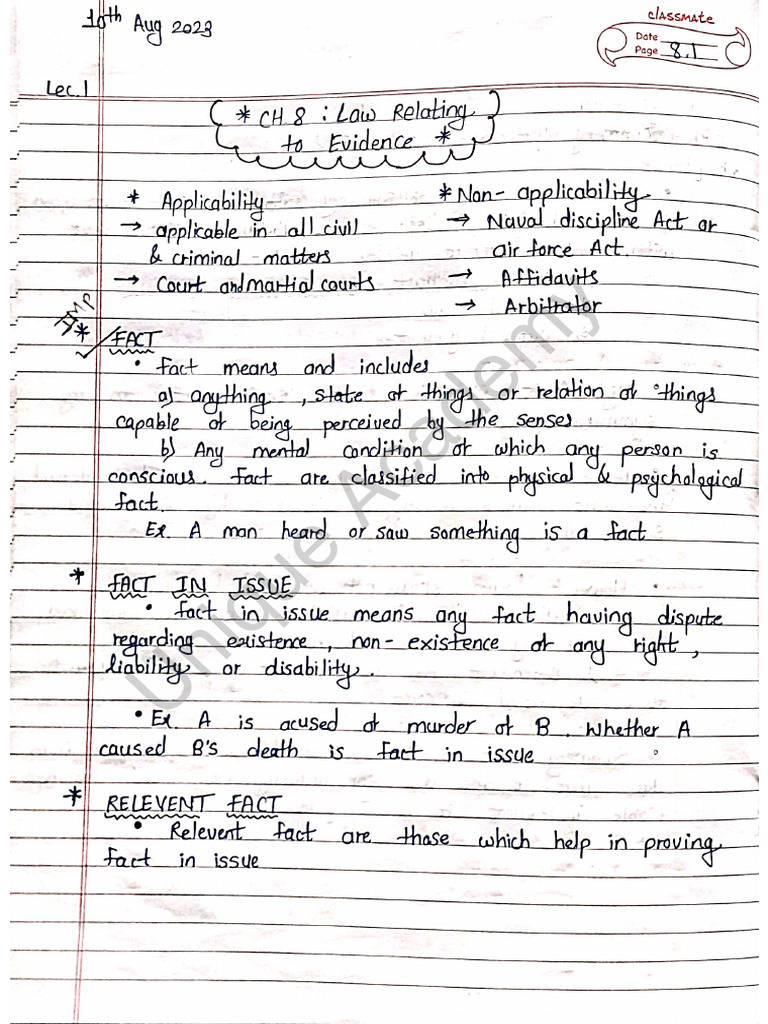 10th Aug 2023
classmate
Date
Page 8.1
Lec.1
* CH 8 : Law Relating
to Evidence *
* Applicability
→ applicable in all civil
& criminal matters
→ Court and martial courts
* Non-applicability
→ Naval discipline Act or
air force Act.
→ Affidavits
→ Arbitrator
IMP
* FACT
• fact means and includes
a) anything , state of things or relation of things
capable of being perceived by the senses
b) Any mental condition of which any person is
conscious. fact are classified into physical & psychological
fact.
Ex. A man heard or saw something is a fact
* FACT IN ISSUE
• fact in issue means any fact having dispute
regarding existence, non-existence of any right,
liability or disability.
• Ex A is acused of murder of B. whether A
caused B's death is fact in issue
* RELEVENT FACT
• Relevent fact are those which help in proving
fact in issue
Unique Academy